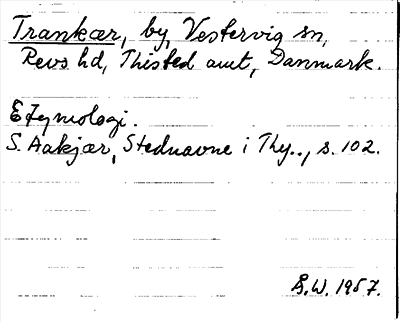 Trankær, by, Vestervig sn,
Revs hd, Thisted amt, Danmark.
Etymologi.
S. Aakjær, Stednavne i Thy.., s. 102.
Å.W. 1957.